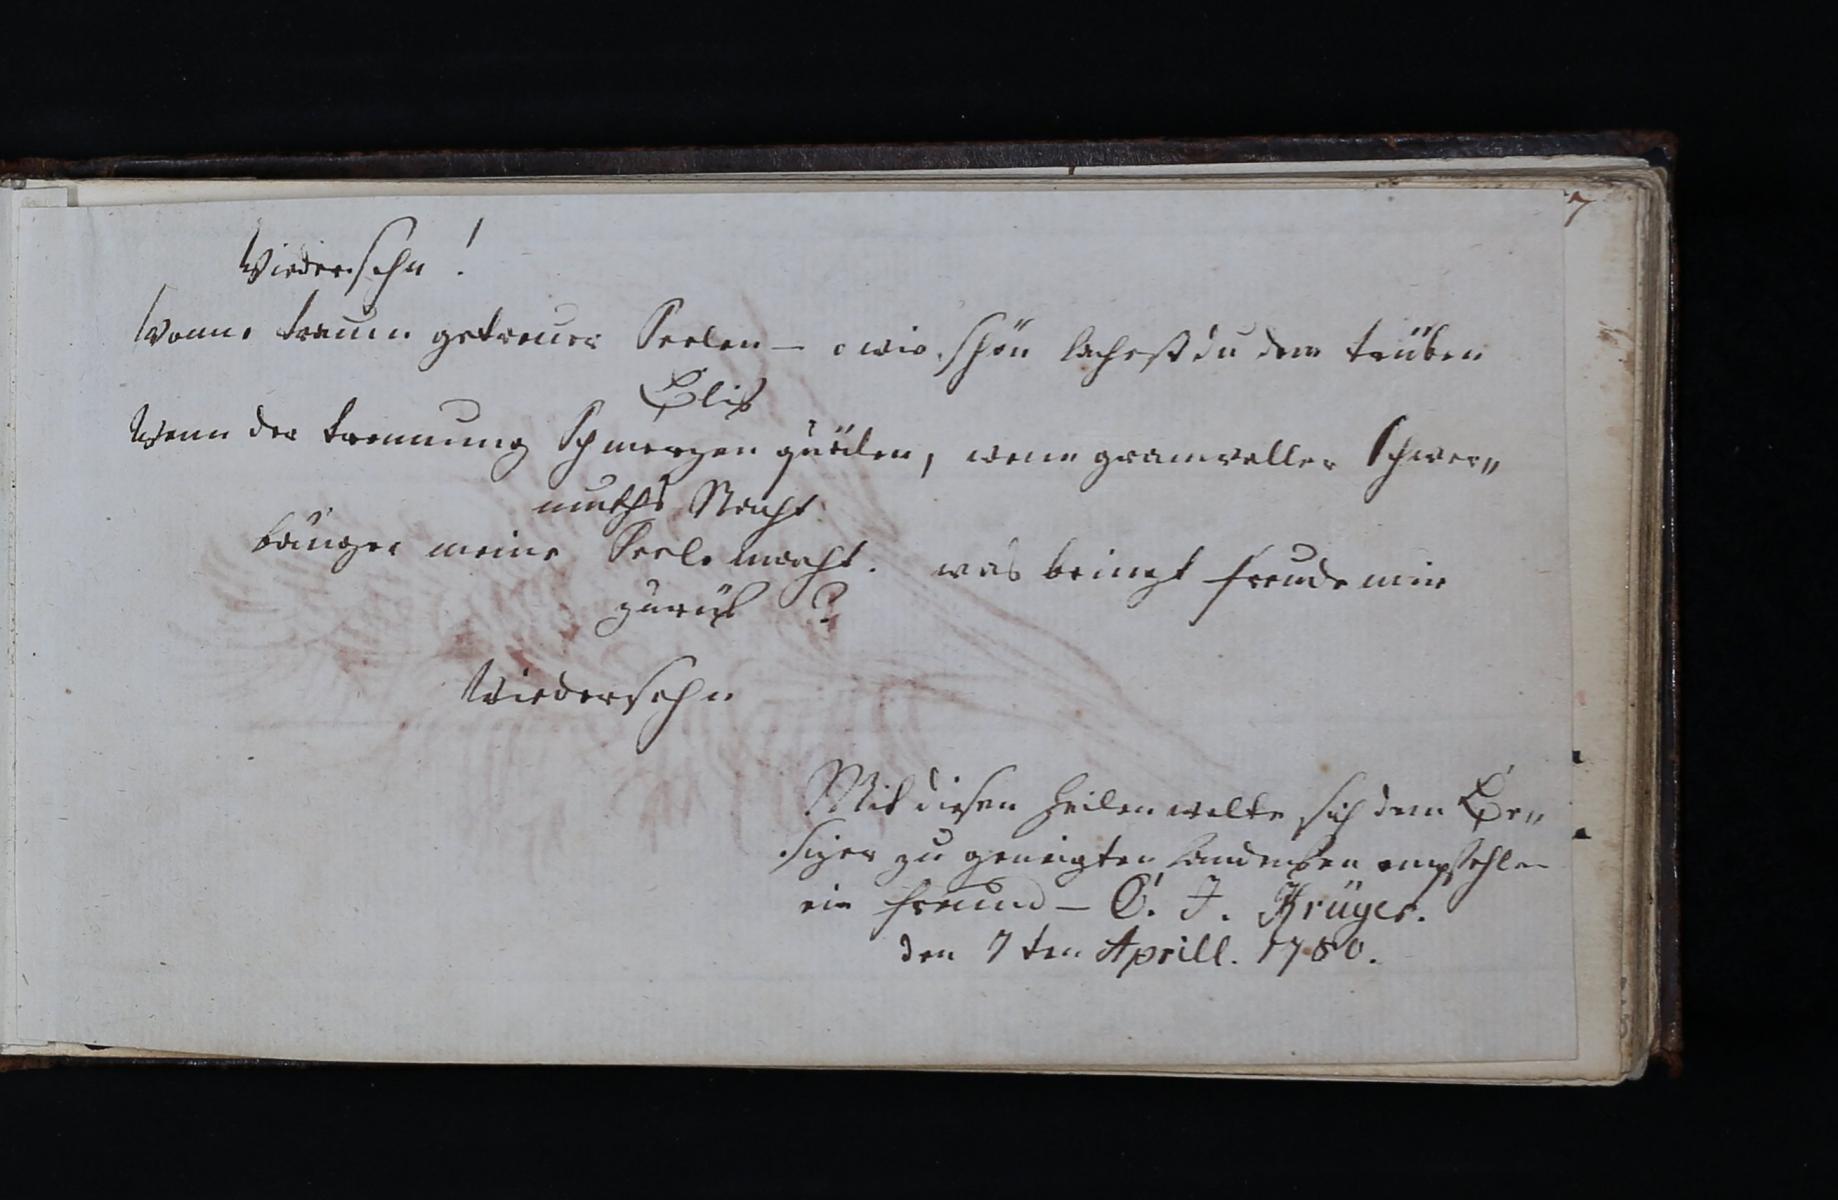 7
Wiedersehn!
Wonne traum getreuer Seelen – o wie schön lachest du dem trüben
Blik
Wenn der trennung Schmerzen quälen, wenn gramvoller Schwer„
muths Nacht
bänger meine Seele macht. was bringt freude mir
zurük?
Wiedersehn
Mit diesen Zeilen wolte sich dem Be„
sizer zu geneigten Andenken empfehlen
ein freund – C. J. Krüger.
den 7ten Aprill. 1780.